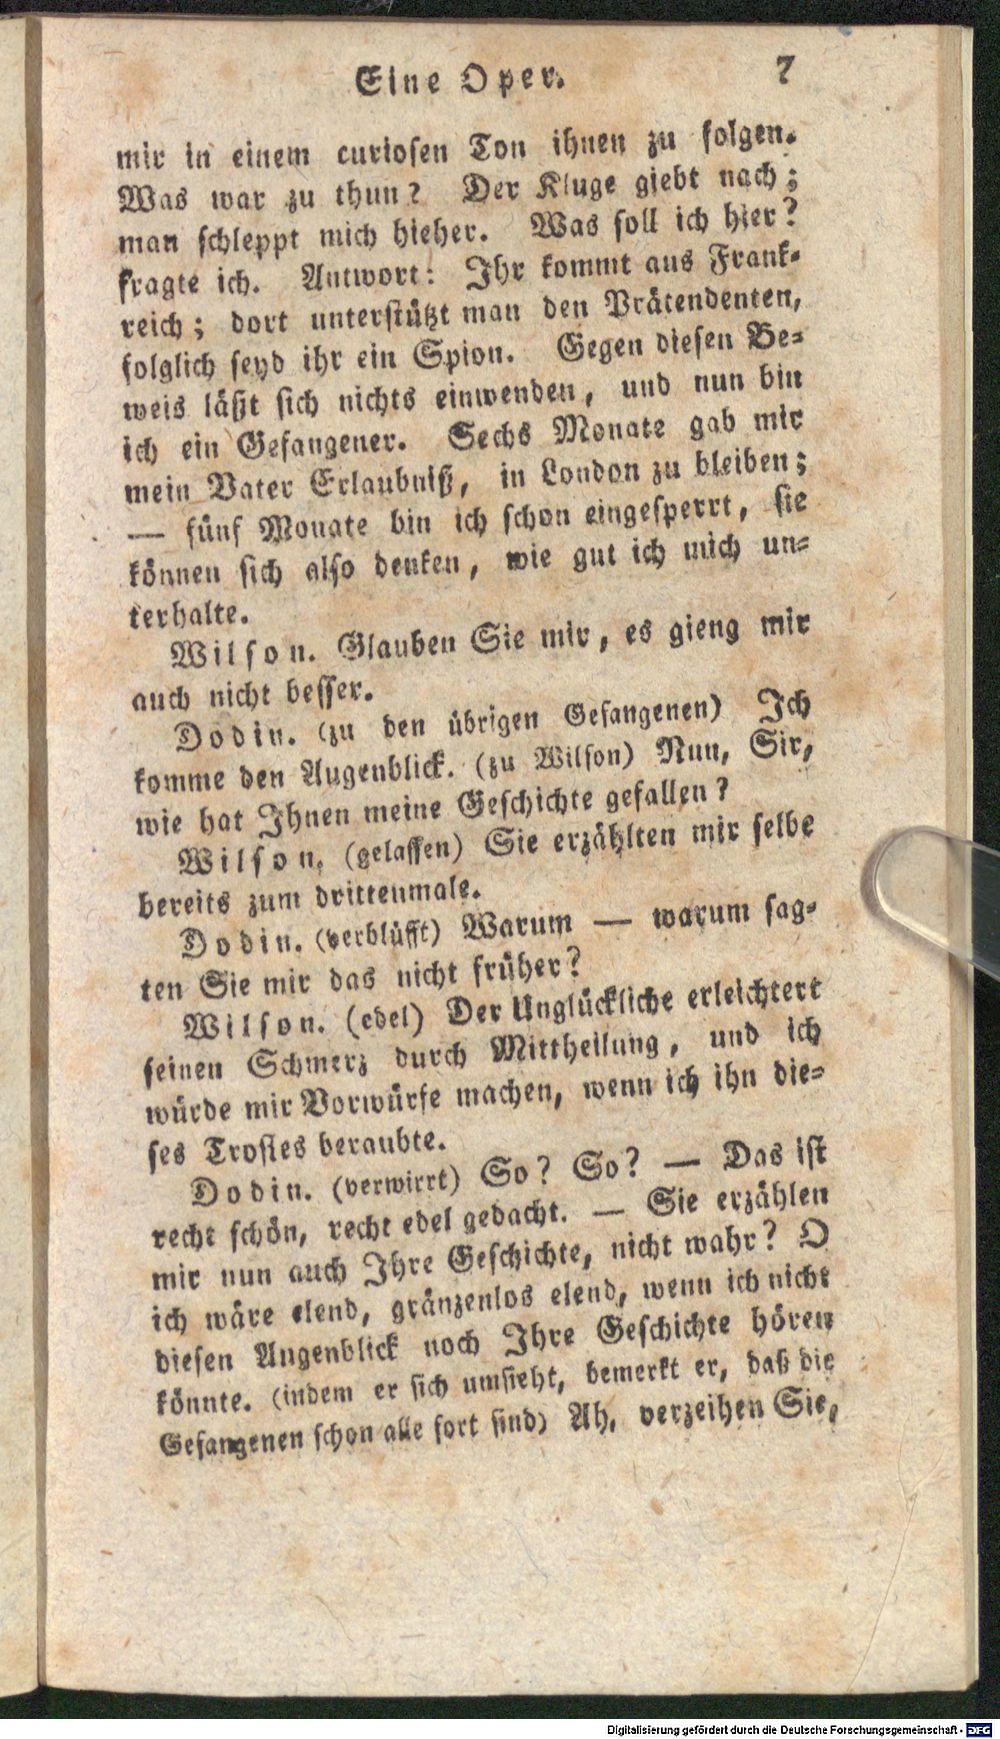 Eine Oper. 7
mir in einem curiosen Ton ihnen zu folgen.
Was war zu thun? Der Kluge giebt nach;
man schleppt mich hieher. Was soll ich hier?
fragte ich. Antwort: Ihr kommt aus Frank-
reich; dort unterstützt man den Prätendenten,
folglich seyd ihr ein Spion. Gegen diesen Be-
weis läßt sich nichts einwenden, und nun bin
ich ein Gefangener. Sechs Monate gab mir
mein Vater Erlaubniß, in London zu bleiben;
— fünf Monate bin ich schon eingesperrt, sie
können sich also denken, wie gut ich mich un-
terhalte.
Wilson. Glauben Sie mir, es gieng mir
auch nicht besser.
Dodin. (zu den übrigen Gefangenen) Ich
komme den Augenblick. (zu Wilson) Nun, Sir,
wie hat Ihnen meine Geschichte gefallen?
Wilson. (gelassen) Sie erzählten mir selbe
bereits zum drittenmale.
Dodin. (verblüfft) Warum — warum sag-
ten Sie mir das nicht früher?
Wilson. (edel) Der Unglückliche erleichtert
seinen Schmerz durch Mittheilung, und ich
würde mir Vorwürfe machen, wenn ich ihn die-
ses Trostes beraubte.
Dodin. (verwirrt) So? So? — Das ist
recht schön, recht edel gedacht. — Sie erzählen
mir nun auch Ihre Geschichte, nicht wahr? O
ich wäre elend, gränzenlos elend, wenn ich nicht
diesen Augenblick noch Ihre Geschichte hören
könnte. (indem er sich umsieht, bemerkt er, daß die
Gefangenen schon alle fort sind) Ah, verzeihen Sie,
Digitalisierung gefördert durch die Deutsche Forschungsgemeinschaft - DFG